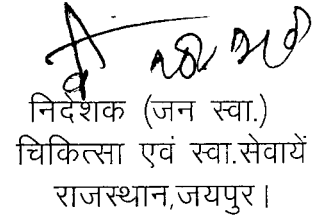 निदेशक (जन स्वा.)
चिकित्सा एवं स्वा.सेवायें
राजस्थान,जयपुर।